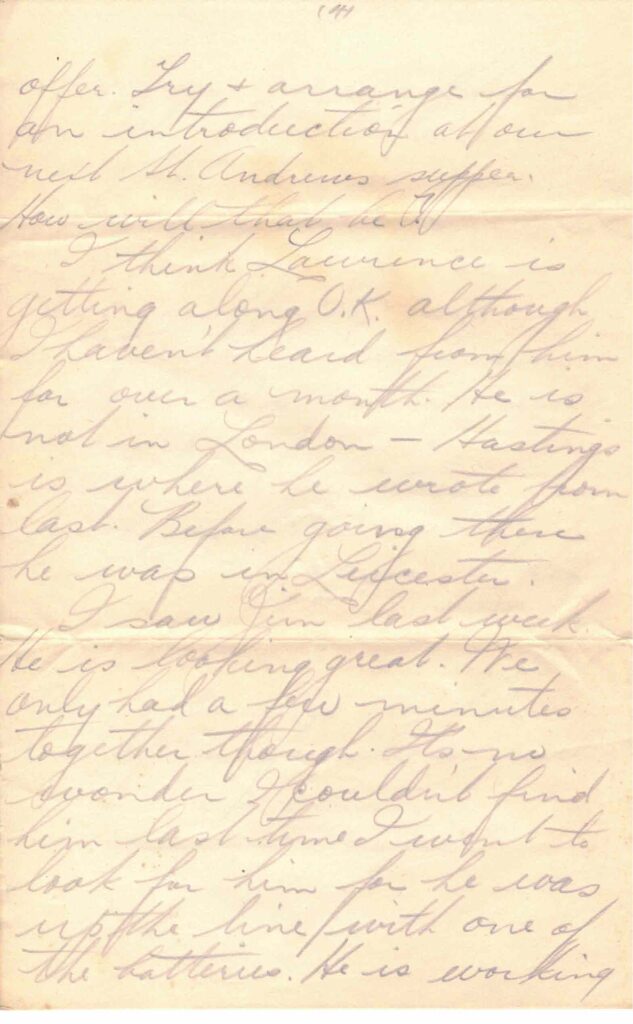 (4)
offer. Try & arrange for
an introduction at our
next St. Andrews supper.
How will that be?
I think Lawrence is
getting along O.K. although
I haven't heard from him
for over a month. He is
not in London - Hastings
is where he wrote from
last. Before going there
he was in Leicester.
I saw Jim last week.
He is looking great. We
only had a few minutes
together though. It's no
wonder I couldn't find
him last time I went to
look for him for he was
up the line with one of
the batteries. He is working